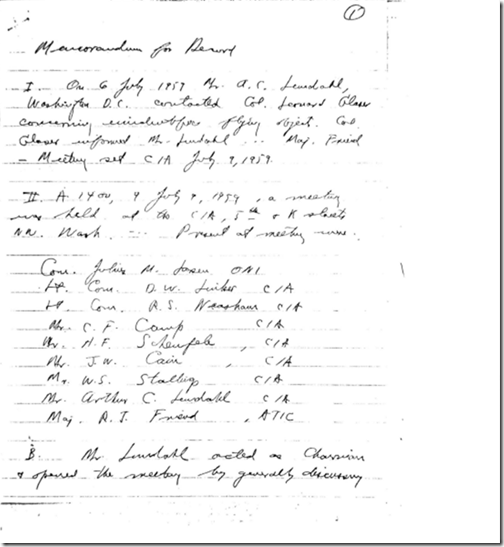 1
Memorandum for Record
I. On 6 July 1959 Mr. A.C. Lundahl,
Washington D.C. contacted Col. Leonard Glaser
concerning unidentified flying object. Col.
Glaser informed Mr. Lundahl ... Maj. Friend
- Meeting set CIA July 9, 1959.
II. A 1400, 9 July 1959, a meeting
was held at the CIA, 5th & K streets
N.W. Wash. ... Present at meeting were.
Com. Julius M. Larsen ONI
Lt. Com. D.W. CIA
Lt. Com. R.S. CIA
Mr. C.F. Camp CIA
Mr. H.F. Scheufele, CIA
Mr. J.W. Cain, CIA
Mr. W.S. Stallings CIA
Mr. Arthur C. Lundahl CIA
Maj. R.J. Friend, ATIC
B. Mr. Lundahl acted as Chairman
& opened the meeting by generally discussing